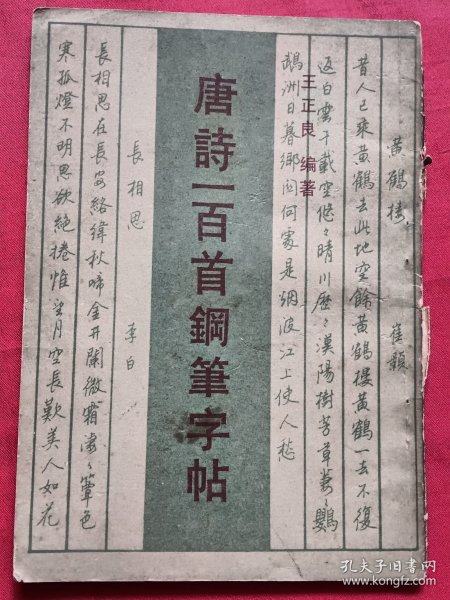 黄鹤楼 崔颢
昔人已乘黄鶴去此地空餘黄鶴樓黄鶴一去不復
返白雲千載空悠々晴川歷々漢陽樹芳草萋々鸚
鵡洲日暮鄉関何處是烟波江上使人愁
王正良 編著
唐詩一百首鋼筆字帖
長相思 李白
長相思在長安絡緯秋啼金井闌微霜凄々簟色
寒孤燈不明思欲絶捲帷望月空長歎美人如花
孔夫子旧书网
kongfz.com